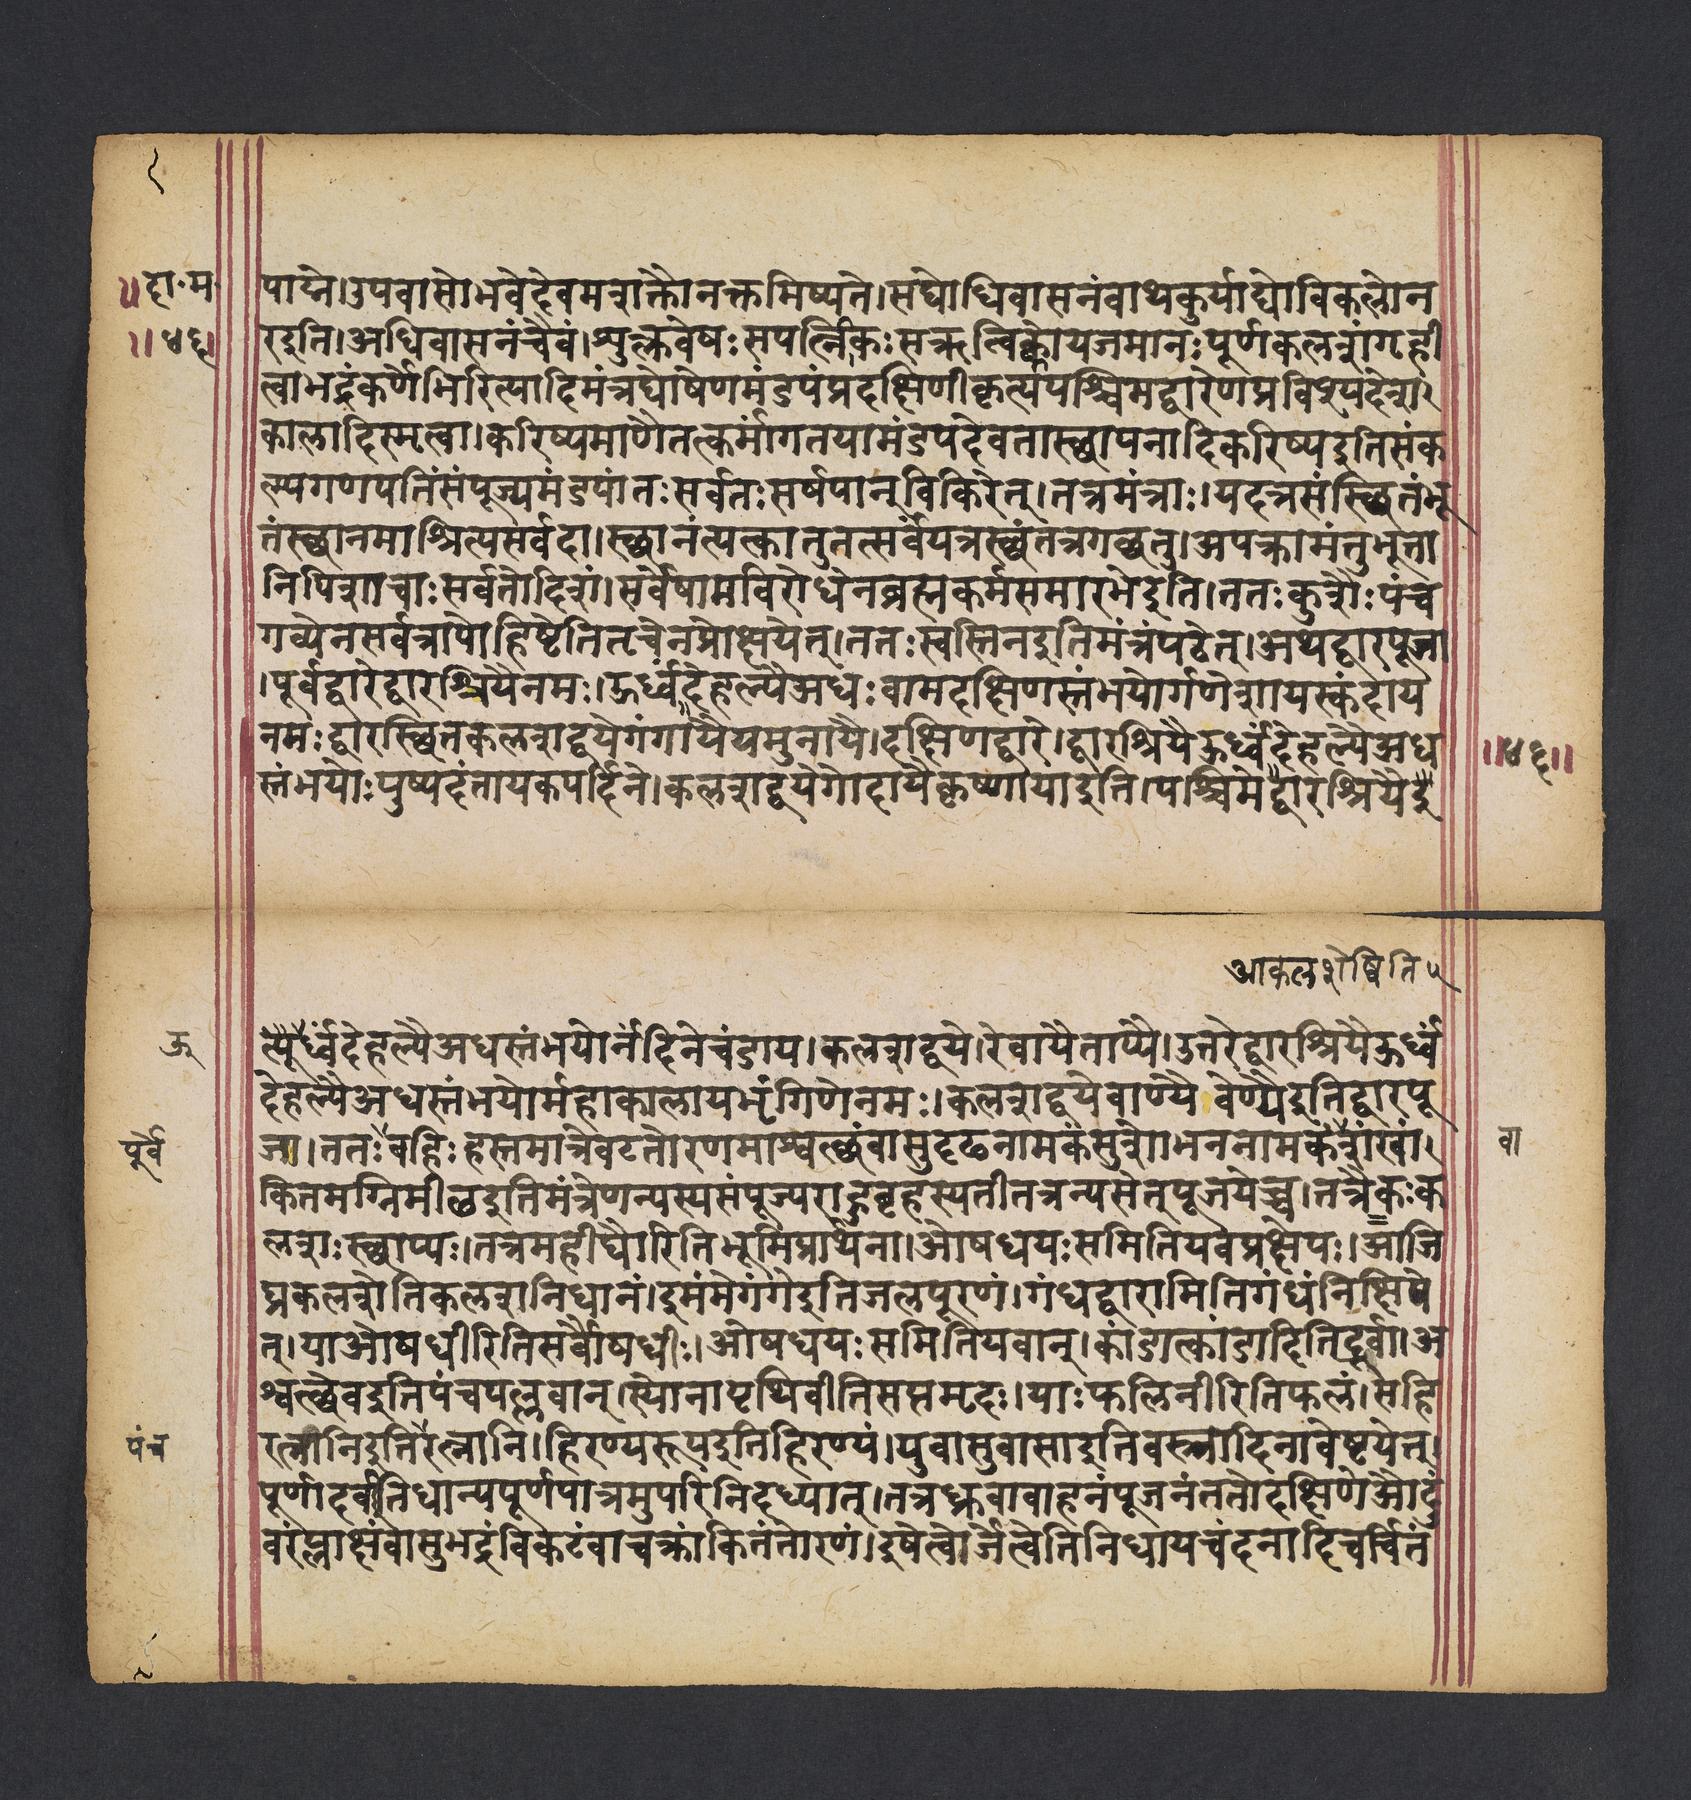 ॥दा·म·
॥४६।
पाप्ने।उपवासोभवेद्देवमशक्तौनक्तमिष्यते।सद्योधिवासनंवाथकुर्याद्योविकलोन
रइति।अधिवासनंचैवं।शुक्लवेषःसपत्निकःसऋत्विक्कोयजमानःपूर्णकलशंगृही
त्वाभद्रंकर्णेभिरित्यादिमंत्रघोषेणमंडपंप्रदक्षिणीकृत्यपश्चिमद्वारेणप्रविश्यदेशा
कालादिस्मृत्वा।करिष्यमाणैतत्कर्मांगतयामंडपदेवतास्थापनादिकरिष्यइतिसंक
ल्प्यगणपतिंसंपूज्यमंडपांतःसर्वतःसर्षपान्विकिरेत्।तत्रमंत्राः।यदत्रसंस्थितंभू
तंस्थानमाश्रित्यसर्वदा।स्थानंत्यक्त्वातुतत्सर्वंयत्रस्थंतत्रगछतु।अपक्रामंतुभूता
निपिशाचाःसर्वतोदिशं।सर्वेषामविरोधेनब्रह्मकर्मसमारभेइति।ततःकुशैःपंच
गव्येनसर्वत्रापोहिष्टेतितृचेनप्रोक्षयेत्।ततःस्वस्तिनइतिमंत्रंपठेत्।अथद्वारपूजा
।पूर्वद्वारेद्वारश्रियैनमः।ऊर्ध्वंदेहल्यैअधःवामदक्षिणस्तंभयोर्गणेशायस्कंदाय
नमःद्वारस्थितकलशद्वयेगंगायैयमुनायै।दक्षिणद्वारे।द्वारश्रियैऊर्ध्वंदेहल्यैअध
स्तंभयोःपुष्पदंतायकपर्दिने।कलशद्वयेगोदायैकृष्णायाइति।पश्चिमेद्वारश्रियैदे
॥४६॥
आकलशेष्विति५
ऊ
ल्यूर्ध्वंदेहल्यैअधस्तंभयोर्नंदिनेचंडाय।कलशद्वये।रेवायैताप्यै।उत्तरेद्वारश्रियैऊर्ध्वं
देहल्यैअधस्तंभयोर्महाकालायभृंगिणेनमः।कलशद्वयेवाण्यै वेण्यैइतिद्वारपू
पूर्वे
जा।ततःबहिःहस्तमात्रेवटतोरणमाश्वत्थंवासुदृढनामकंसुशोभननामकंशंखां
वा
कितमग्निमीळइतिमंत्रेणन्यस्यसंपूज्यराहुबृहस्पतीतत्रन्यसेत्पूजयेच्च।तत्रैकःक
लशःस्थाप्यः।तत्रमहीद्यौरितिभूमिप्रार्थना।ओषधयःसमितियवप्रक्षेपः।आजि
घ्रकलशेतिकलशनिधानं।इमंमेगंगेइतिजलपूरणं।गंधद्वारामितिगंधंनिक्षिपे
त्।याओषधीरितिसर्वौषधीः।ओषधयःसमितियवान्।कांडात्कांडादितिदूर्वा।अ
श्वत्थेवइतिपंचपल्लवान्।स्योनापृथिवीतिसप्तमृदः।याःफलिनीरितिफलं।सहि
पंच
रत्नानिइतिरत्नानि।हिरण्यरूपइतिहिरण्यं।युवासुवासाइतिवस्त्रादिनावेष्टयेत्।
पूर्णादर्वीतिधान्यपूर्णपात्रमुपरिनिदध्यात्।तत्रध्रुवावाहनंपूजनंततोदक्षिणेऔदुं
बरंप्लाक्षंवासुभद्रंविकटंवाचक्रांकितंतोरणं।इषेत्वोर्जेत्वेतिनिधायचंदनादिचर्चितं